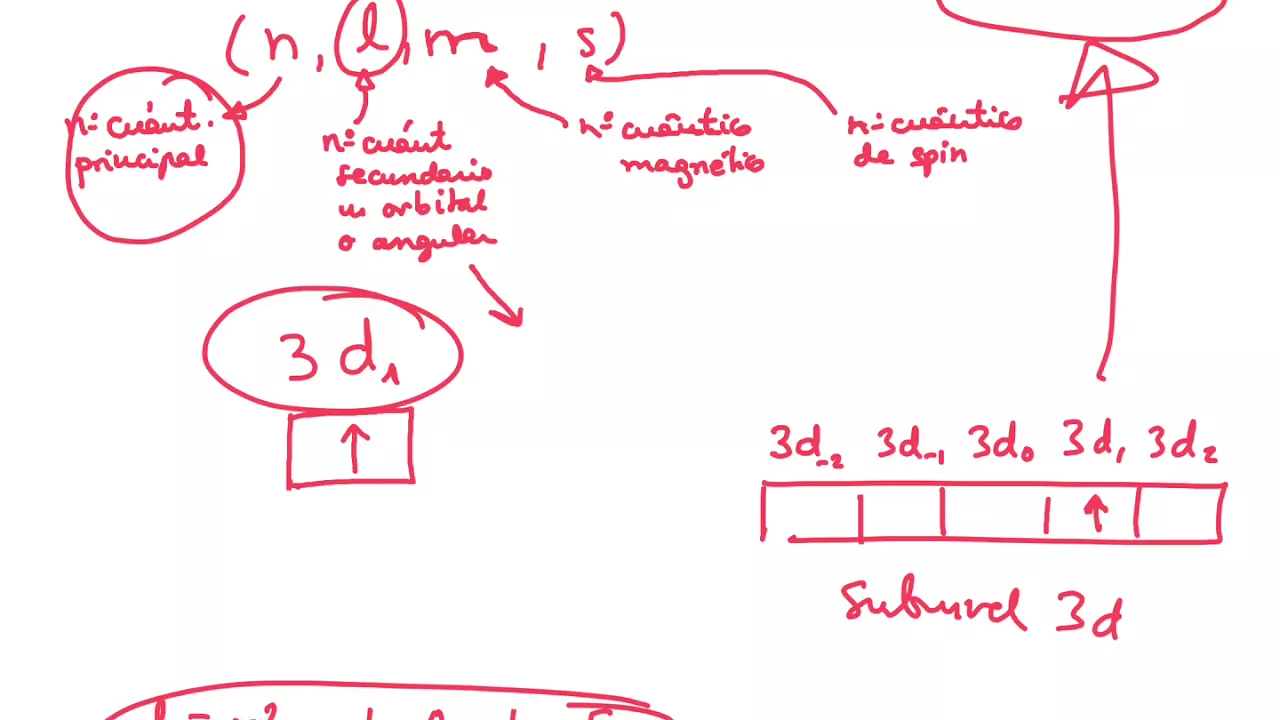 (n, l, m, s)
nº cuánt. principal
nº cuánt
secundario
u orbital
o angular
nº cuántico
magnético
nº cuántico
de spin
3 d₁
↑
3d₋₂ 3d₋₁ 3d₀ 3d₁ 3d₂
↑
Subnivel 3d